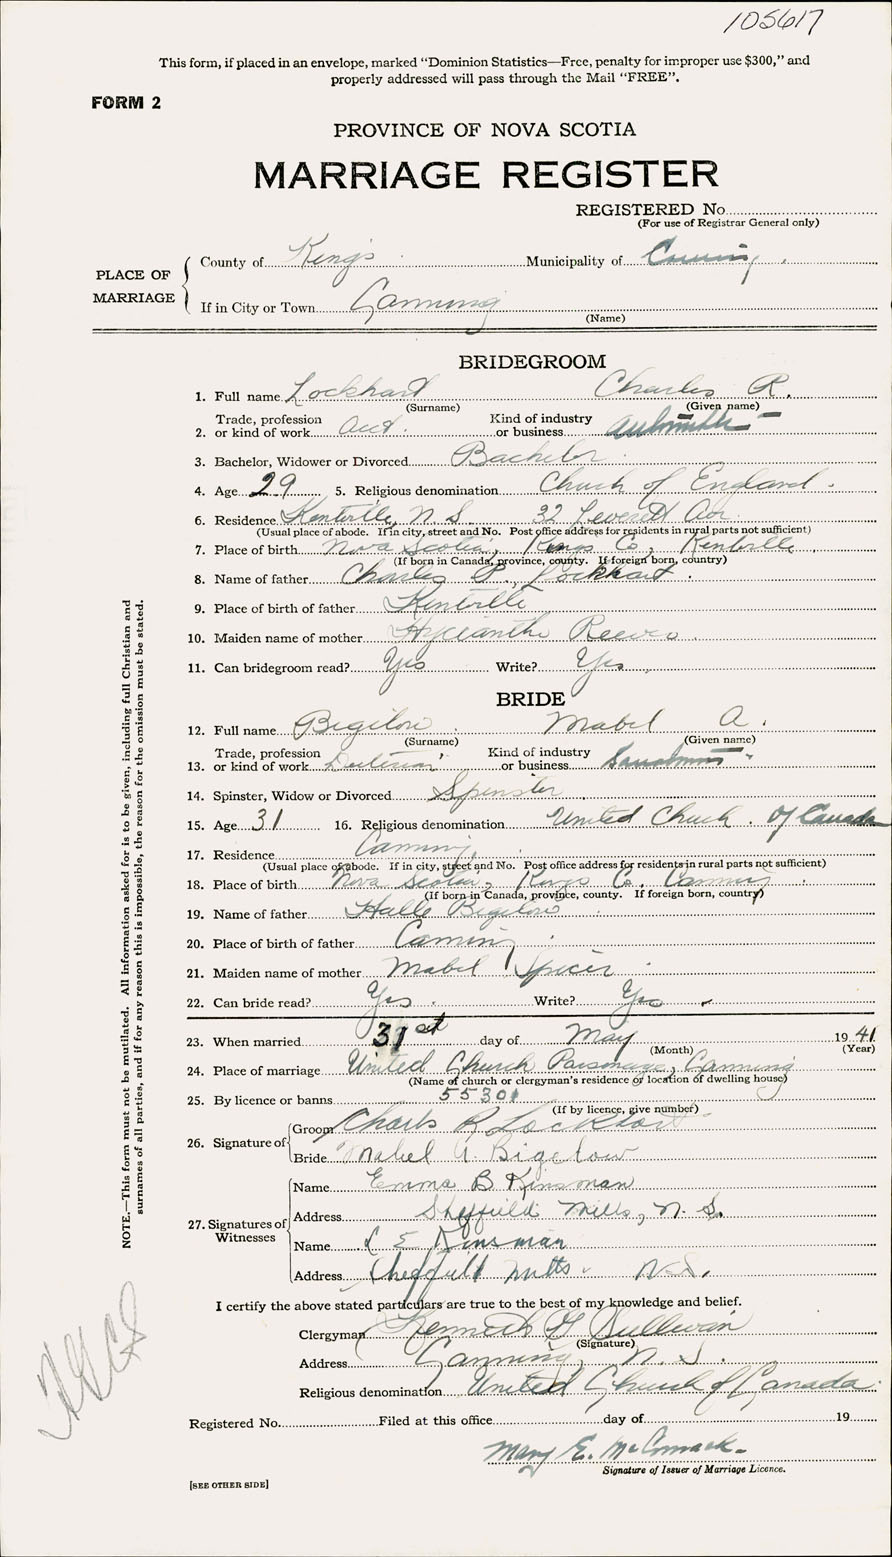 105617
This form, if placed in an envelope, marked "Dominion Statistics—Free, penalty for improper use $300," and
properly addressed will pass through the Mail "FREE".
FORM 2
PROVINCE OF NOVA SCOTIA
MARRIAGE REGISTER
REGISTERED No.
(For use of Registrar General only)
PLACE OF MARRIAGE
County of Kings Municipality of
If in City or Town Canning
(Name)
BRIDEGROOM
1. Full name Lockhart Charles R.
(Surname) (Given name)
Trade, profession Kind of industry
2. or kind of work Acct. or business
3. Bachelor, Widower or Divorced Bachelor
4. Age 29 5. Religious denomination Church of England.
6. Residence Kentville, N.S. 32 Leverett Ave
(Usual place of abode. If in city, street and No. Post office address for residents in rural parts not sufficient)
7. Place of birth Nova Scotia, Kings Co., Kentville
(If born in Canada, province, county. If foreign born, country)
8. Name of father Charles P. Lockhart.
9. Place of birth of father Kentville
10. Maiden name of mother Hycianthe Reeves
11. Can bridegroom read? Yes Write? Yes
BRIDE
12. Full name Bigelow Mabel A.
(Surname) (Given name)
Trade, profession Kind of industry
13. or kind of work or business
14. Spinster, Widow or Divorced Spinster
15. Age 31 16. Religious denomination United Church of Canada
17. Residence Canning
(Usual place of abode. If in city, street and No. Post office address for residents in rural parts not sufficient)
18. Place of birth Nova Scotia, Kings Co. Canning
(If born in Canada, province, county. If foreign born, country)
19. Name of father Halle Bigelow
20. Place of birth of father Canning
21. Maiden name of mother Mabel Spicer
22. Can bride read? Yes Write? Yes
23. When married 31st day of May 1941
(Month) (Year)
24. Place of marriage United Church Parsonage, Canning
(Name of church or clergyman's residence or location of dwelling house)
25. By licence or banns 55301
(If by licence, give number)
26. Signature of
Groom Charles R Lockhart
Bride Mabel A. Bigelow
27. Signatures of Witnesses
Name Emma B Kinsman
Address Sheffield Mills, N.S.
Name L E Kinsman
Address Sheffield Mills N.S.
I certify the above stated particulars are true to the best of my knowledge and belief.
Clergyman Kenneth G Sullivan
(Signature)
Address Canning, N.S.
Religious denomination United Church of Canada
Registered No. Filed at this office day of 19
Mary E. McCormack
Signature of Issuer of Marriage Licence.
[SEE OTHER SIDE]
NOTE.—This form must not be mutilated. All information asked for is to be given, including full Christian and
surnames of all parties, and if for any reason this is impossible, the reason for the omission must be stated.